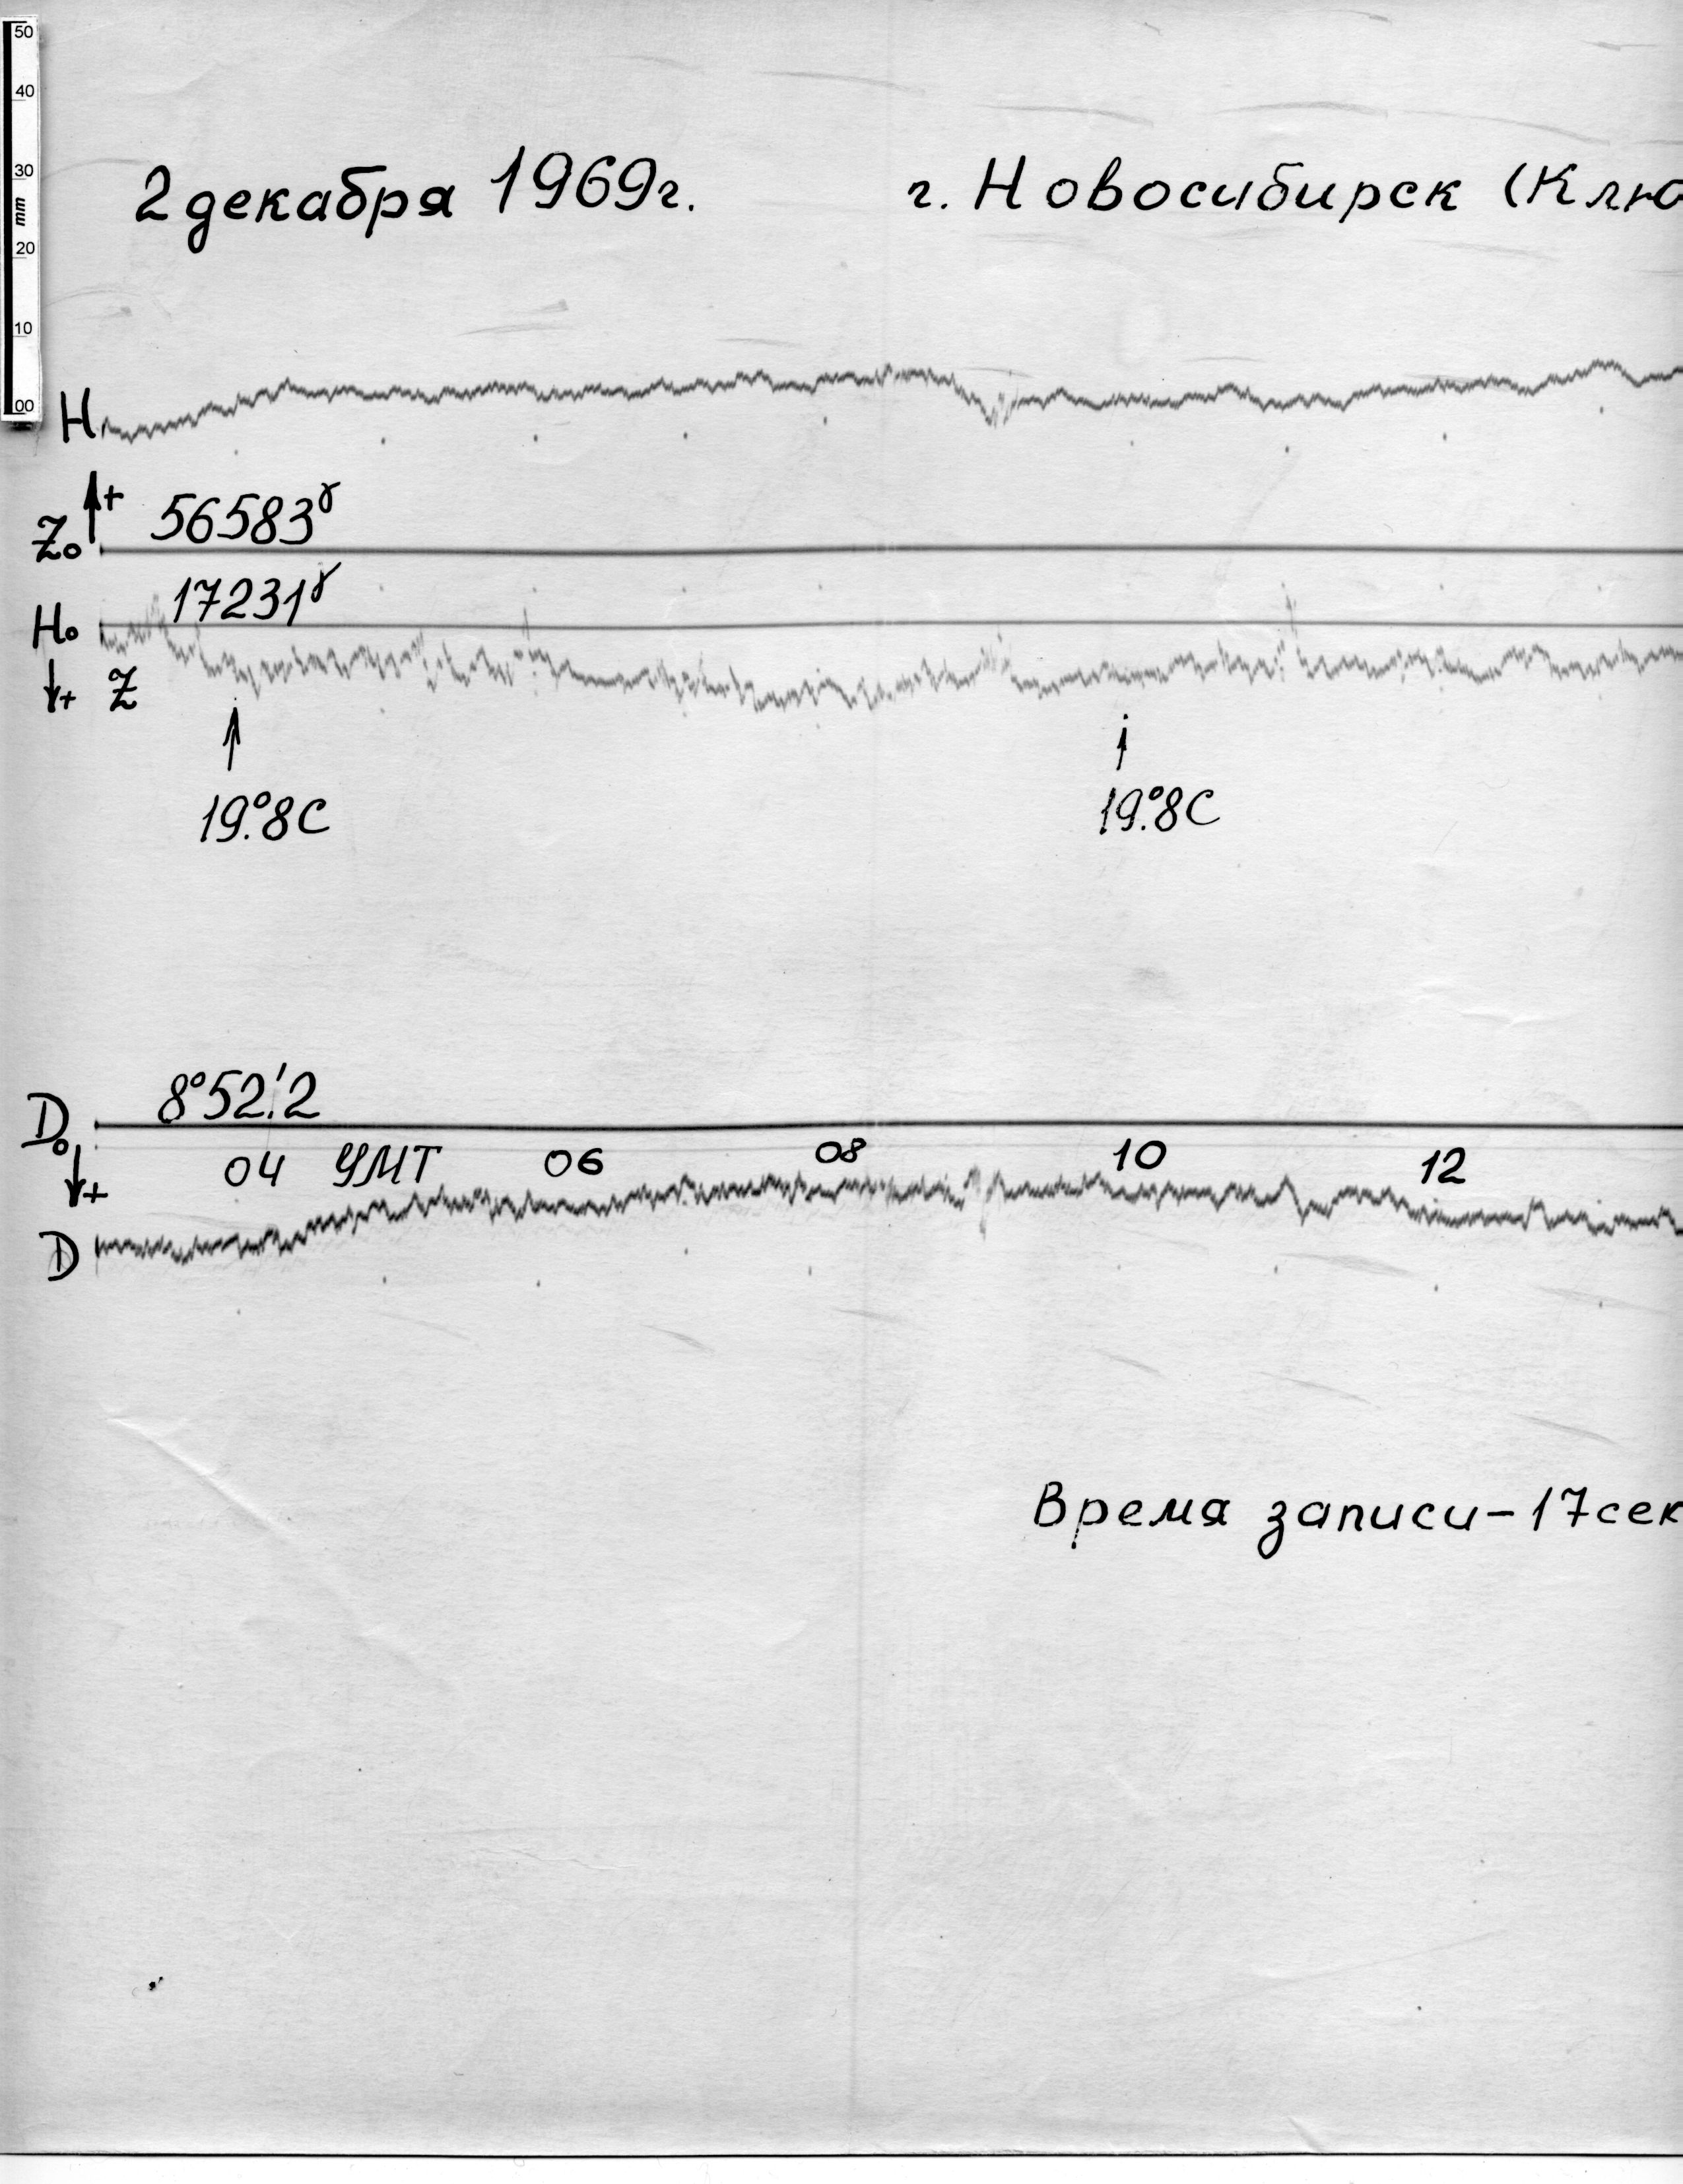 50
40
30
mm
20
10
00
2 декабря 1969г. г. Новосибирск (Клю
H
+
Z₀ 56583ᵞ
H₀ 17231ᵞ
+ Z
19°.8C 19°.8C
D₀ 8°52'.2
04 УМТ 06 08 10 12
+
D
Время записи-17сек